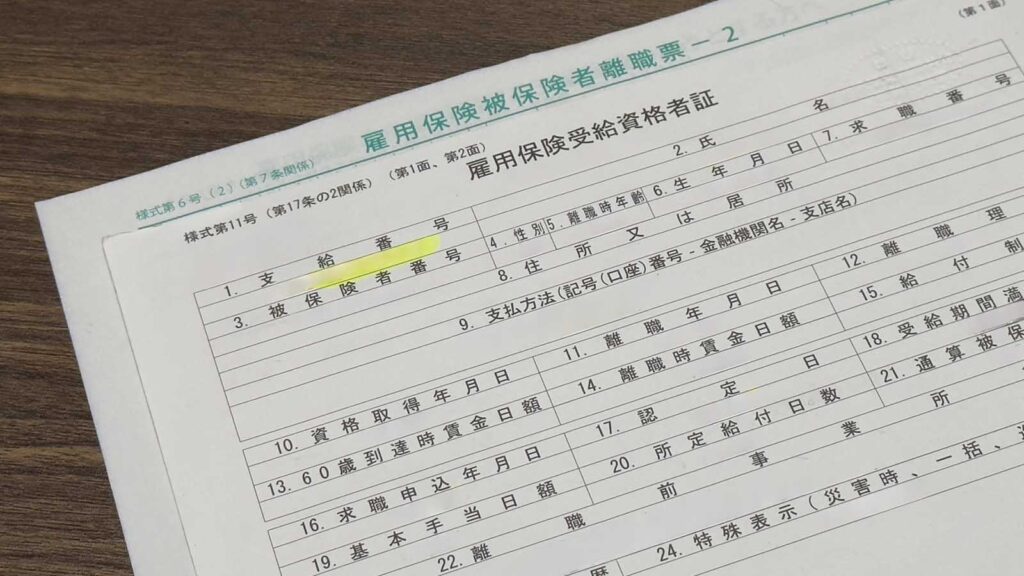 (第1面)
雇用保険被保険者離職票－2
様式第6号(2)(第7条関係)
雇用保険受給資格者証
様式第11号(第17条の2関係)(第1面、第2面)
1. 支給番号
2. 氏名
3. 被保険者番号
4. 性別
5. 離職時年齢
6. 生年月日
7. 求職番号
8. 住所又は居所
9. 支払方法(記号(口座)番号 - 金融機関名 - 支店名)
10. 資格取得年月日
11. 離職年月日
12. 離職理
13. 60歳到達時賃金日額
14. 離職時賃金日額
15. 給付制
16. 求職申込年月日
17. 認定日
18. 受給期間満
19. 基本手当日額
20. 所定給付日数
21. 通算被保
22. 離職前事業所
24. 特殊表示(災害時、一括、